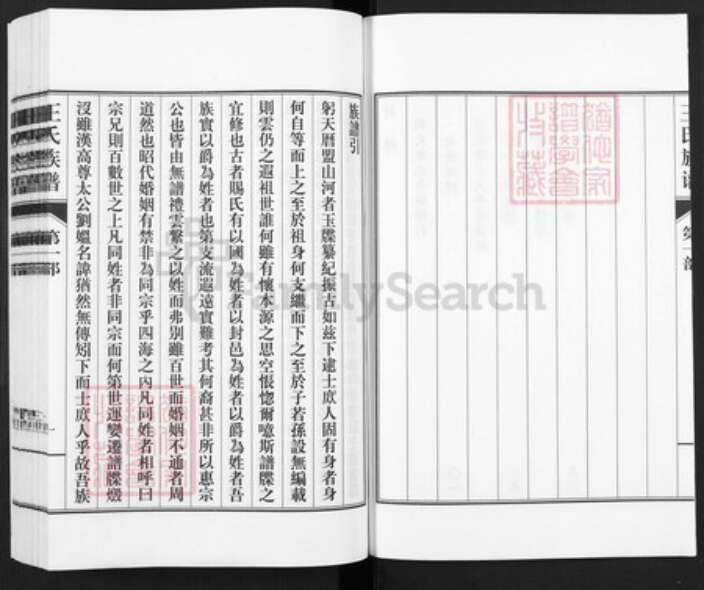 王氏族譜
第一部
族譜引
躬天曆盟山河者玉牒纂紀振古如兹下逮士庶人固有身者身
何自等而上之至於祖身何支繼而下之至於子若孫設無編載
則雲仍之遐祖世誰何雖有懷本源之思空悵惚爾噫斯譜牒之
宜修也古者賜氏有以國為姓者以封邑為姓者以爵為姓者吾
族實以爵為姓者也第支流遐遠實難考其何裔甚非所以惠宗
公也皆由無譜禮雲繫之以姓而弗別雖百世而婚姻不通者周
道然也昭代婚姻有禁非為同宗乎四海之內凡同姓者相呼曰
宗兄則百數世之上凡同姓者非同宗而何第世運變遷譜牒燬
沒雖漢高尊太公劉媼名諱猶然無傳矧下而士庶人乎故吾族
王氏族譜
第一部
FamilySearch